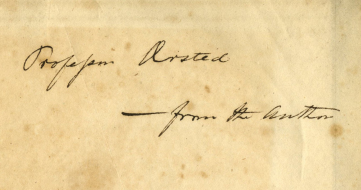 Professor Ørsted
— from the Author